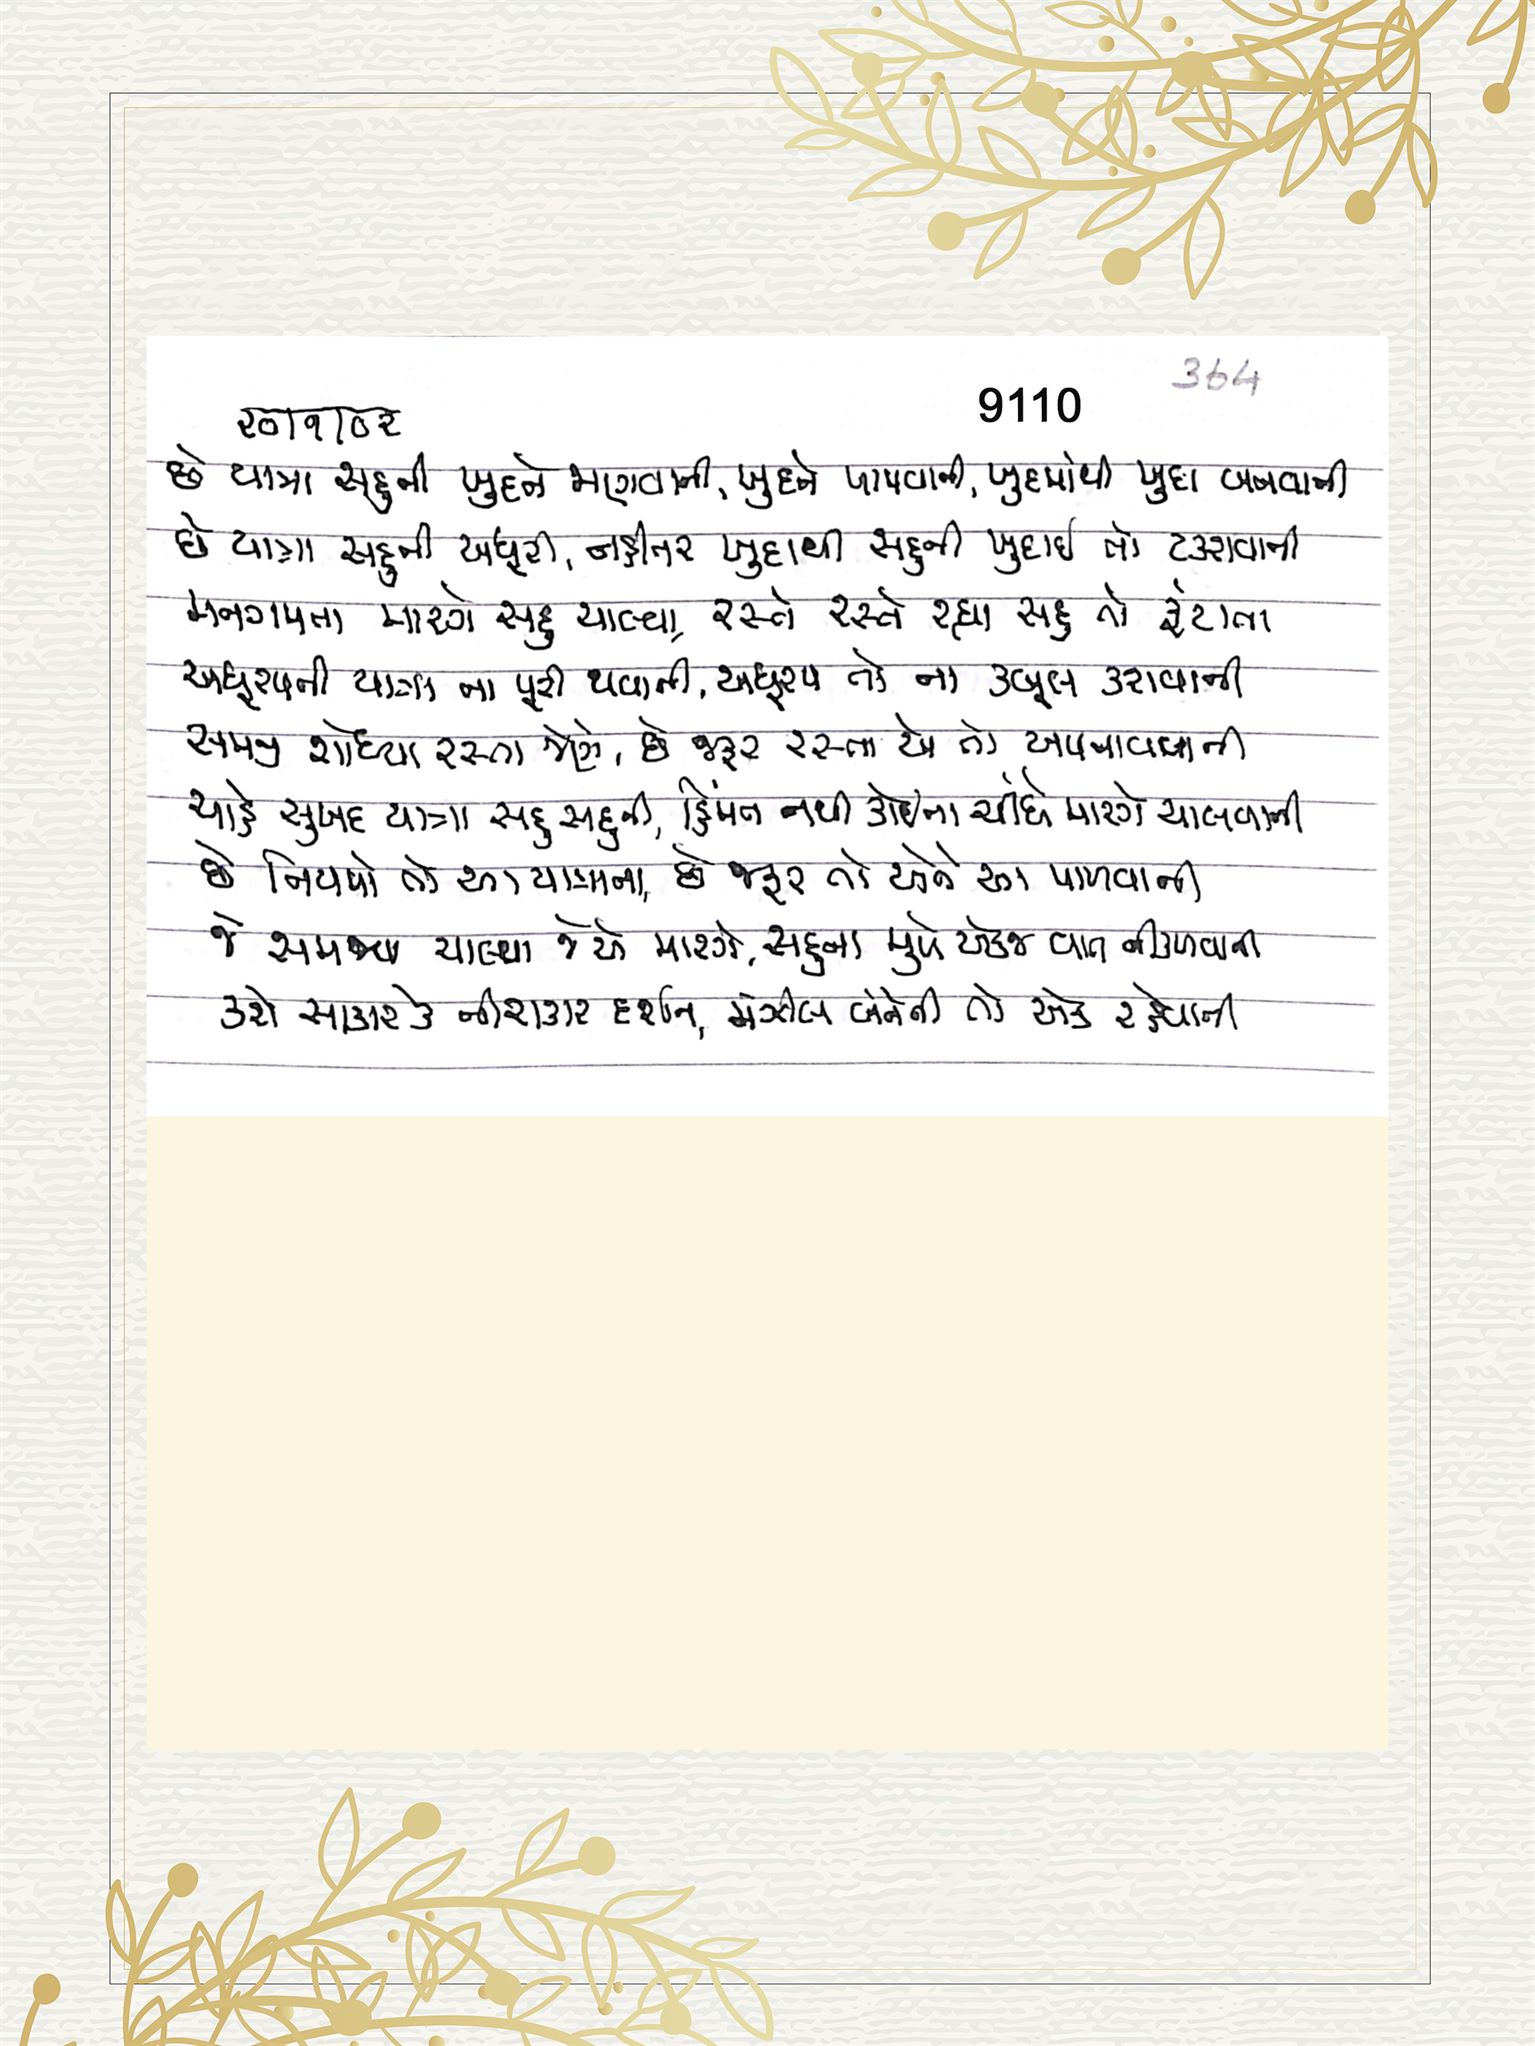 364
9110
૨૦/૧/૦૨
છે યાત્રા સહુની ખુદને મળવાની, ખુદને પામવાની, ખુદમાંથી ખુદા બનવાની
છે યાત્રા સહુની અધૂરી, નહીંતર ખુદાથી સહુની ખુદાઈ તો ટકરાવાની
મનગમતા મારગે સહુ ચાલ્યા, રસ્તે રસ્તે રહ્યા સહુ તો ફંટાતા
અધૂરપની યાત્રા ના પૂરી થવાની, અધૂરપ તો ના કબૂલ કરાવાની
સમજી શોધ્યા રસ્તા જેણે, છે જરૂર રસ્તા એ તો અપનાવવાની
ચાહે સુખદ યાત્રા સહુ સહુની, હિંમત નથી કોઈના ચીંધે મારગે ચાલવાની
છે નિયમો તો આ યાત્રાના, છે જરૂર તો એને આ પાળવાની
જે સમજ્યા ચાલ્યા જે એ મારગે, સહુના મુખે એકજ વાત નીકળવાની
કરો સાકાર કે નીરાકાર દર્શન, મંઝીલ બંનેની તો એક રહેવાની